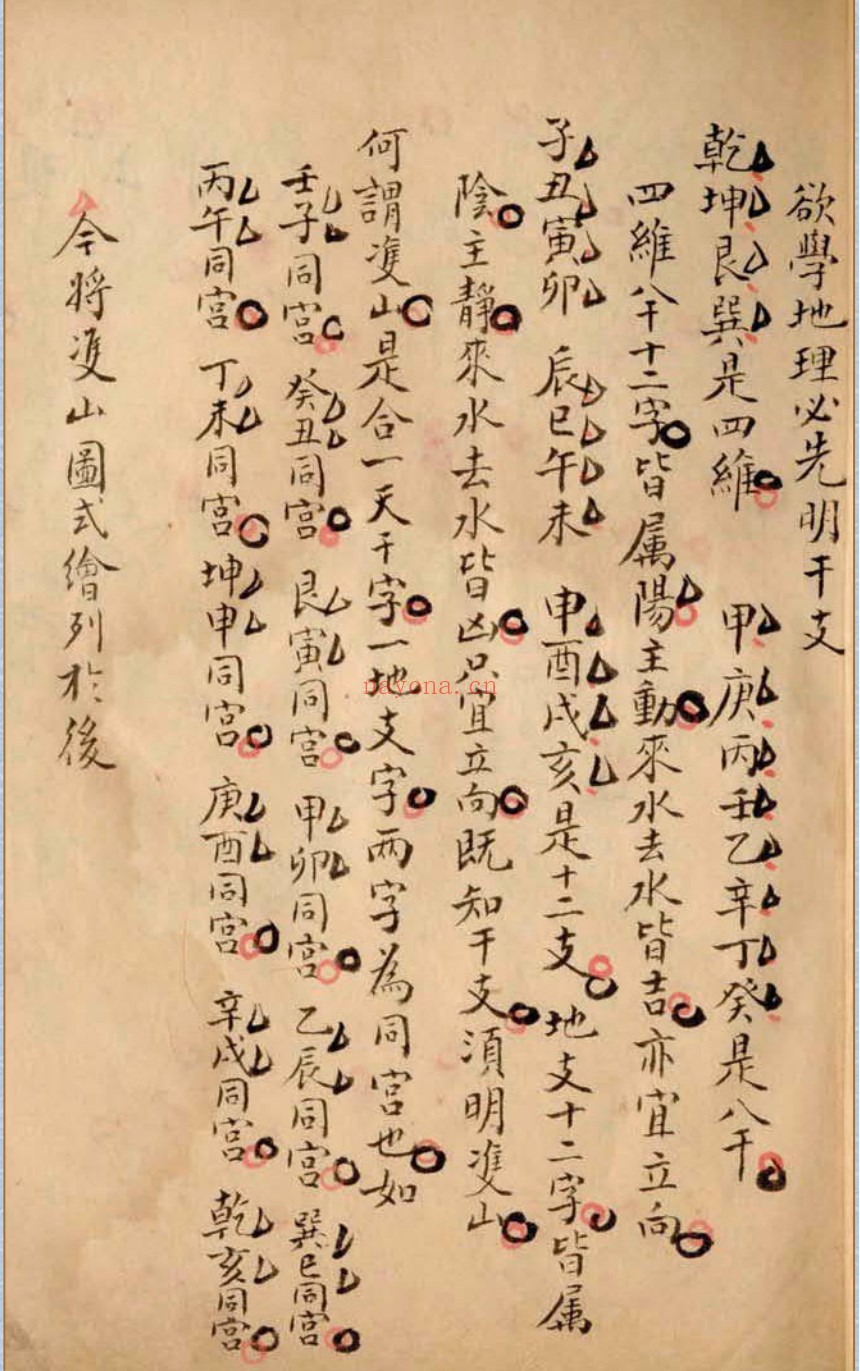 欲學地理必先明干支
乾坤艮巽是四維 甲庚丙壬乙辛丁癸是八干
四維八干十二字皆属陽主動來水去水皆吉亦宜立向
子丑寅卯 辰巳午未 申酉戌亥是十二支 地支十二字皆属
陰主靜來水去水皆凶只宜立向既知干支須明双山
何謂双山是合一天干字一地支字两字為同宫也如
壬子同宫 癸丑同宫 艮寅同宫 甲卯同宫 乙辰同宫 巽巳同宫
丙午同宫 丁未同宫 坤申同宫 庚酉同宫 辛戌同宫 乾亥同宫
今将双山圖式繪列於後
nayona.cn